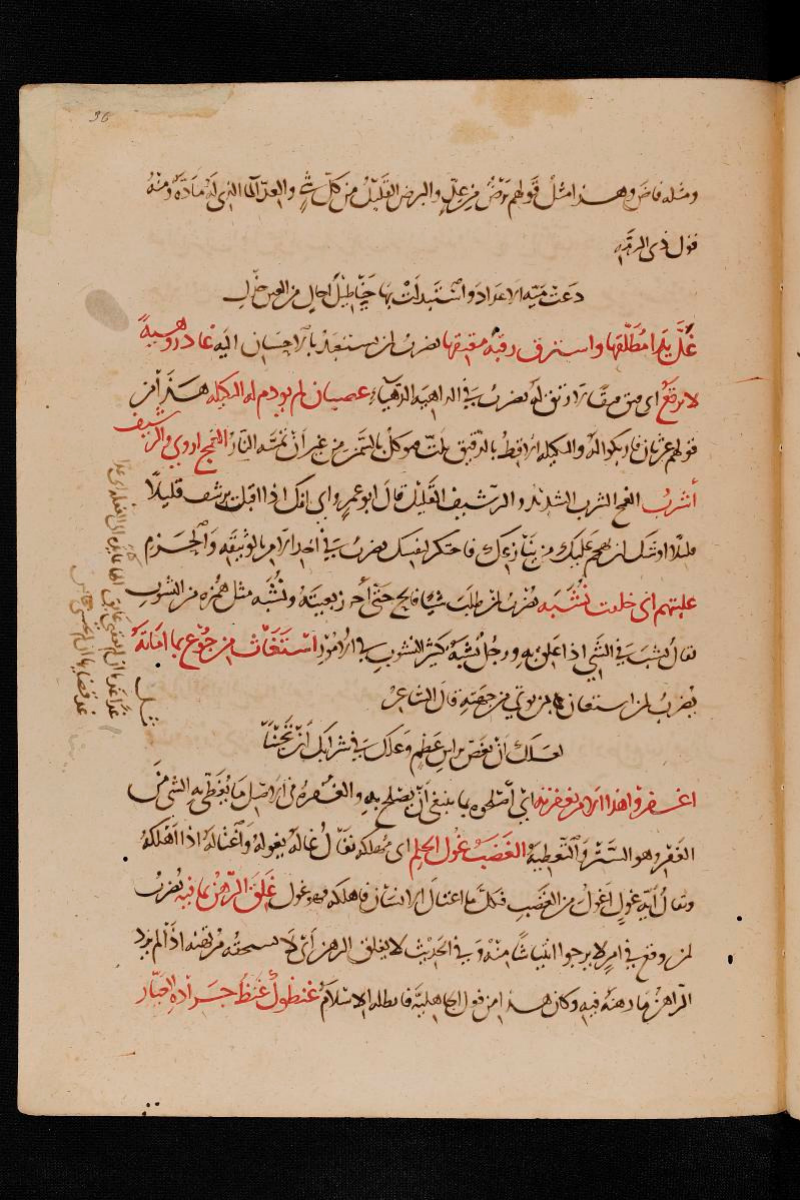 36
ومثله فاض وهذا مثل قولهم برض من عد والبرض القليل من كل شيء والعد الماء الذي له مادة ومنه
قول ذي الرمة
دعت مية الاعداد واستبدلت بها خناطيل آجال من العين خذل
غل يدا مطلقها واسترق رقبة معتقها يضرب لمن استعبد بالاحسان اليه غادر وهية
لا ترقع اي فتق فتقا لا رتق له يضرب في الداهية الدهياء غرثان لم يؤدم له البكيلة هذا من
قولهم غرثان فاربكوا له والبكيلة الاقط بالدقيق يلت فيوكل بالسمن من غير ان تمسه النار الغمج اروى والرشيف
أشرب الغمج الشرب الشديد والرشيف القليل قال ابو عمرو اي انك اذا اقبلت ترشف قليلا
قليلا اوشك ان يهجم عليك من ينازعك فاحتكر لنفسك يضرب في اخذ الامر بالوثيقة والحزم
غلبتهم اني خلقت نشبه يضرب لمن طلب شيئا فالح حتى أحرز بغيته ونشبه مثل همزة من النشوب
يقال نشب في الشيء اذا علق به ورجل نشبة كثير النشوب في الامور استغاث من جوع بما اماته
يضرب لمن استعان بمن يؤتى من جهته قال الشاعر
لعلك ان تغص براس عظم وعلك في شرابك ان تحينا
اغفروا هذا الامر بغفرته اي أصلحوه بما ينبغي أن يصلح به والغفرة في الاصل ما يغطى به الشيء من
الغفر وهو الستر والتغطية الغضب غول الحلم اي مهلكه يقال غاله يغوله واغتاله اذا اهلكه
ويقال أية غول اغول من الغضب فكل ما اغتال الانسان فاهلكه فهو غول غلق الرهن بما فيه يضرب
لمن وقع في امر لا يرجوا انتياشا منه وفي الحديث لا يغلق الرهن اي لا يستحقه مرتهنه اذا لم يرد
الراهن ما رهنه فيه وكان هذا من فعل الجاهلية فابطله الاسلام غنظوك غنظ جرادة العيار